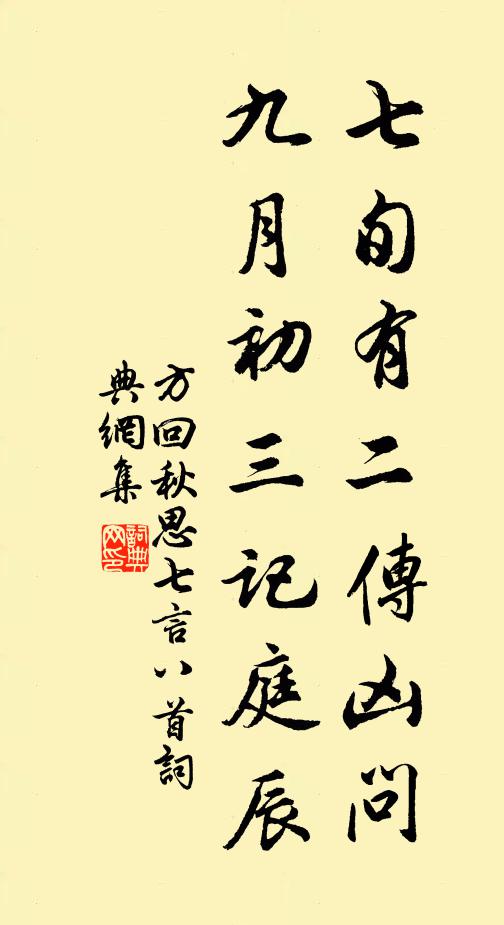 七旬有二傳凶問
九月初三記庭辰
方回秋思七言八首詞
典網集
詞典網印